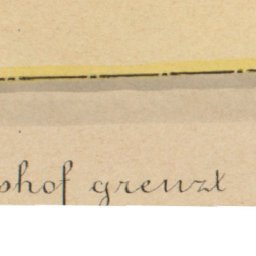 shof grenzt